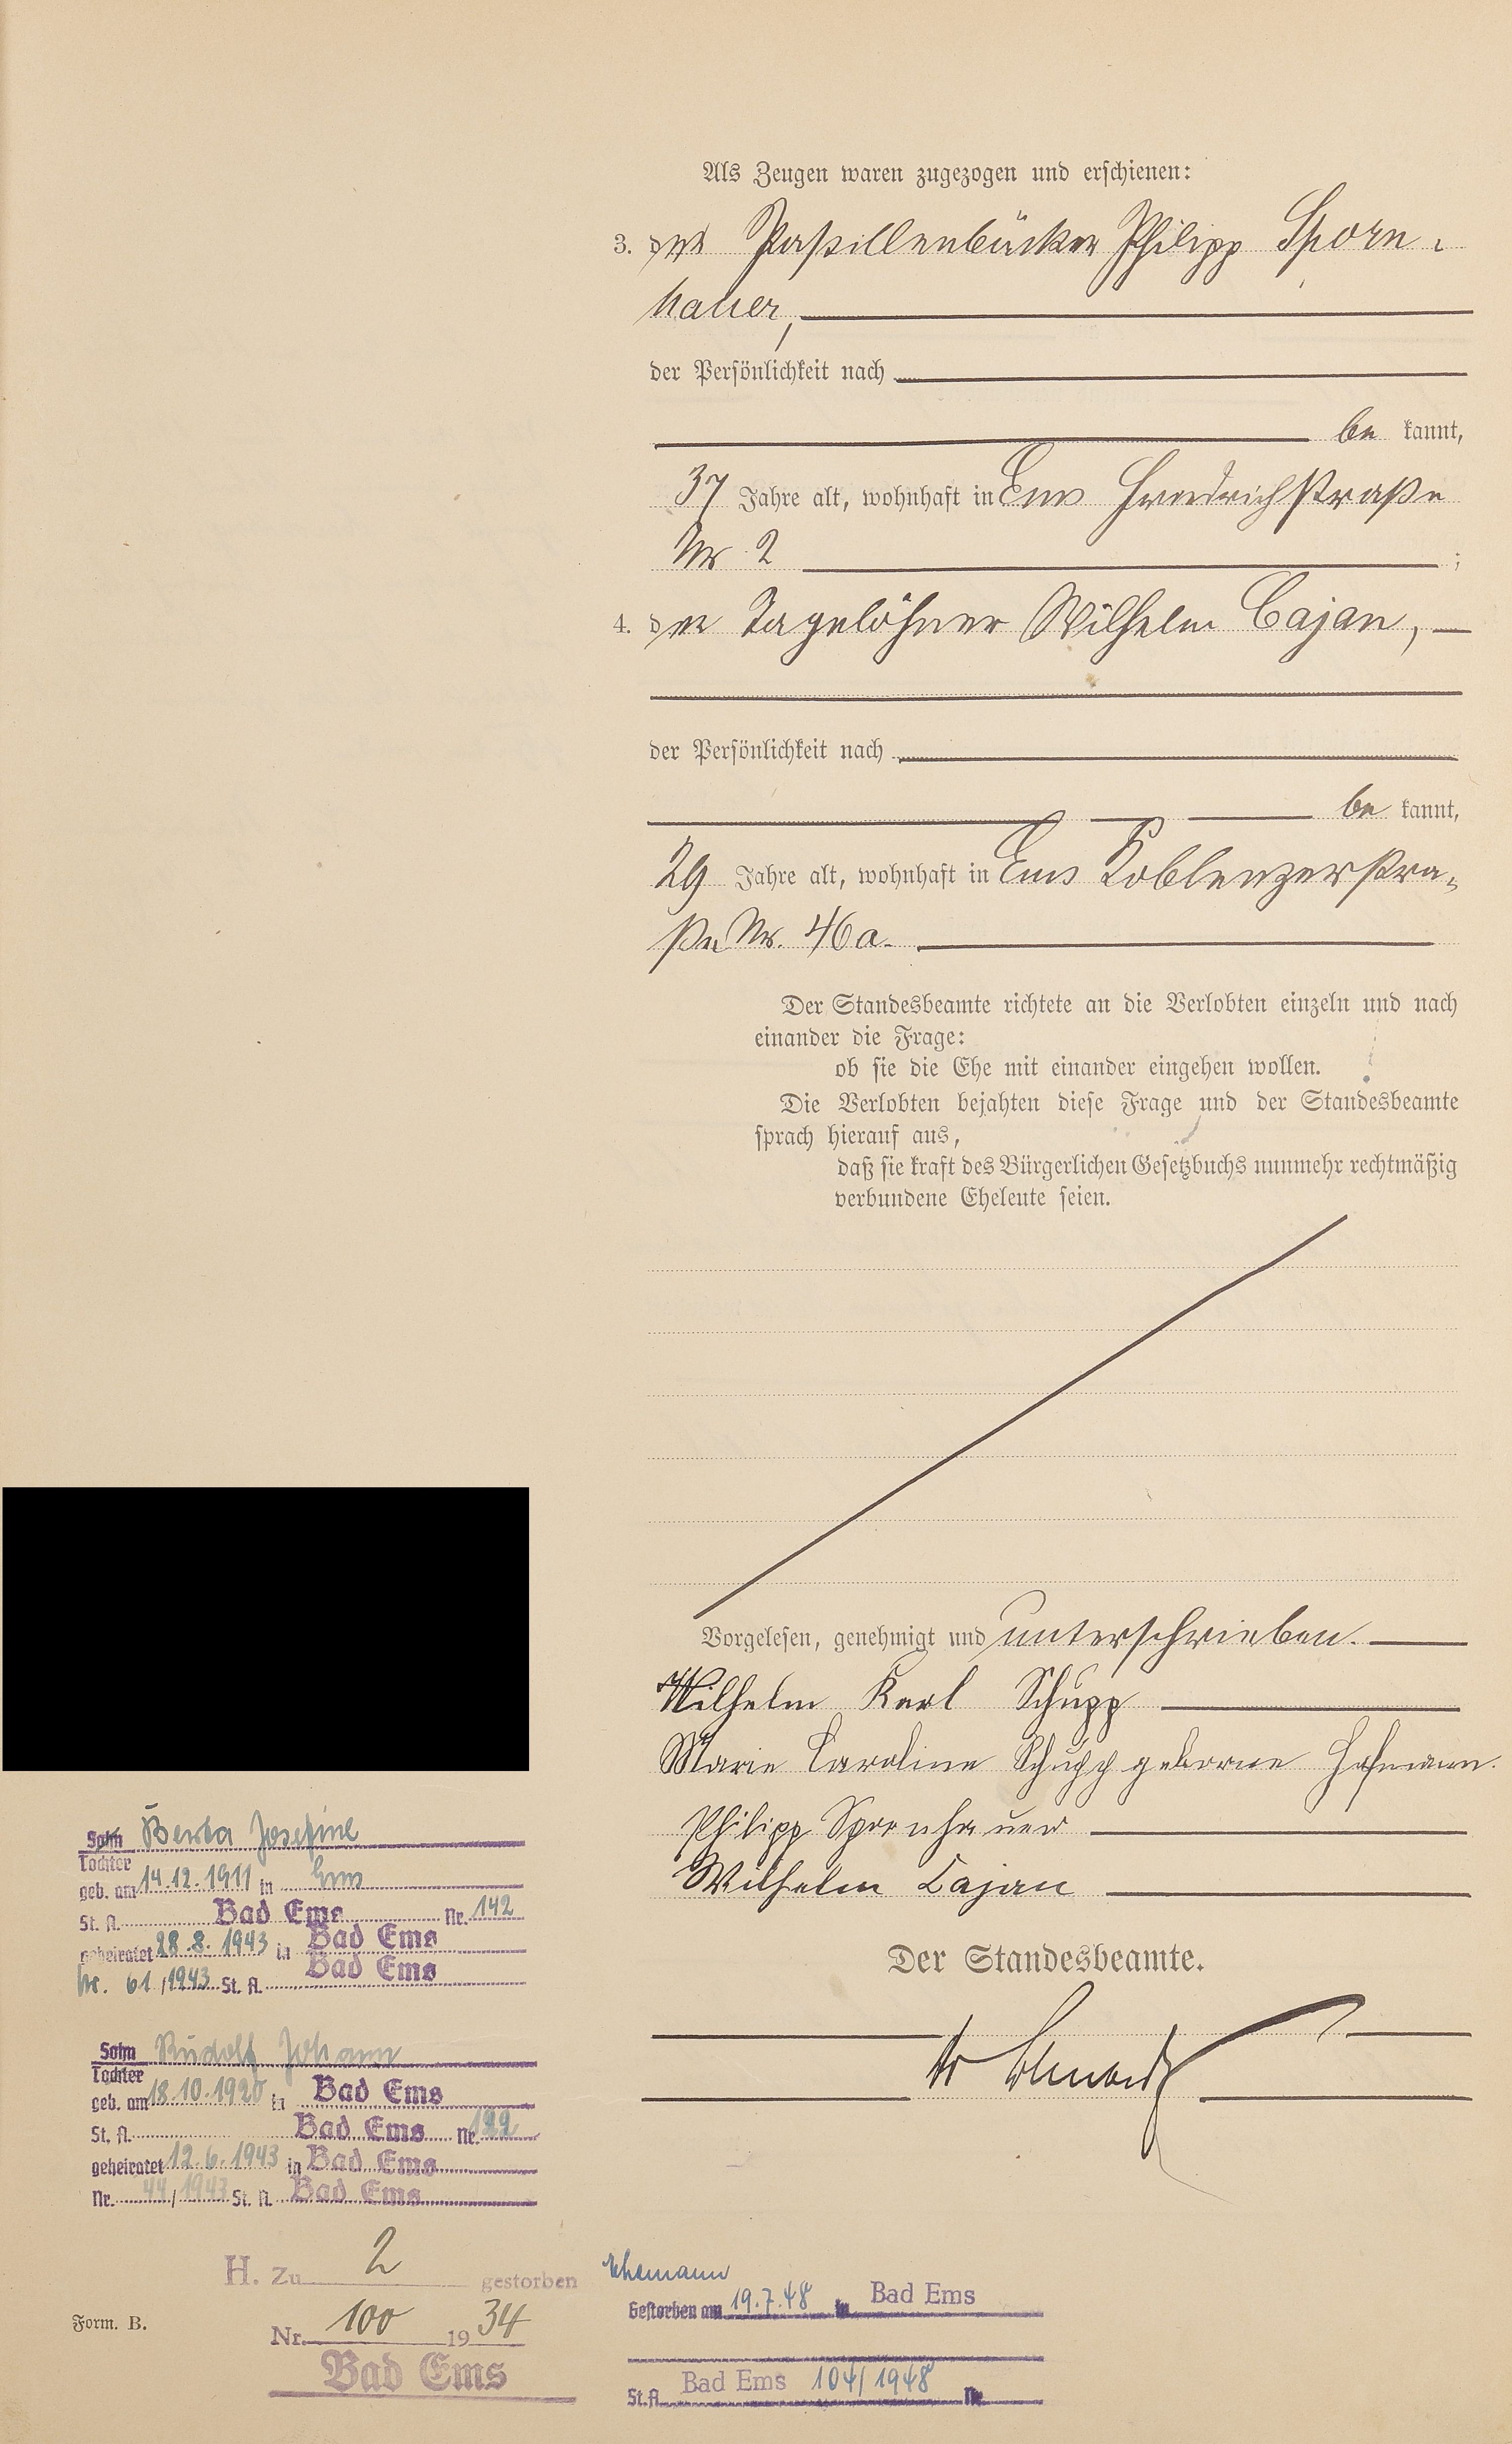 Als Zeugen waren zugezogen und erschienen:
3. der Pastillenbäcker Philipp Sporn-
hauer,
der Persönlichkeit nach
be kannt,
37 Jahre alt, wohnhaft in Ems Friedrichstraße
Nr 2 ;
4. der Tagelöhner Wilhelm Cajan,
der Persönlichkeit nach
be kannt,
29 Jahre alt, wohnhaft in Ems Koblenzerstra-
ße Nr. 46a.
Der Standesbeamte richtete an die Verlobten einzeln und nach
einander die Frage:
ob sie die Ehe mit einander eingehen wollen.
Die Verlobten bejahten diese Frage und der Standesbeamte
sprach hierauf aus,
daß sie kraft des Bürgerlichen Gesetzbuchs nunmehr rechtmäßig
verbundene Eheleute seien.
Vorgelesen, genehmigt und unterschrieben.
Wilhelm Karl Schupp
Marie Caroline Schupp geborne Hofmann.
Philipp Spornhauer
Wilhelm Cajan
Der Standesbeamte.
Sohn Berta Josefine
Tochter
geb. am 14.12.1911 in Ems
St. A. Bad Ems Nr. 142
geheiratet 28.8.1943 in Bad Ems
Nr. 61/1943 St. A. Bad Ems
Sohn Rudolf Johann
Tochter
geb. am 18.10.1920 in Bad Ems
St. A. Bad Ems Nr. 122
geheiratet 12.6.1943 in Bad Ems
Nr. 44/1943 St. A. Bad Ems
H. Zu 2 gestorben
Nr. 100 1934
Bad Ems
Form. B.
Ehemann
Gestorben am 19.7.48 in Bad Ems
St.A. Bad Ems 104/1948 Nr.